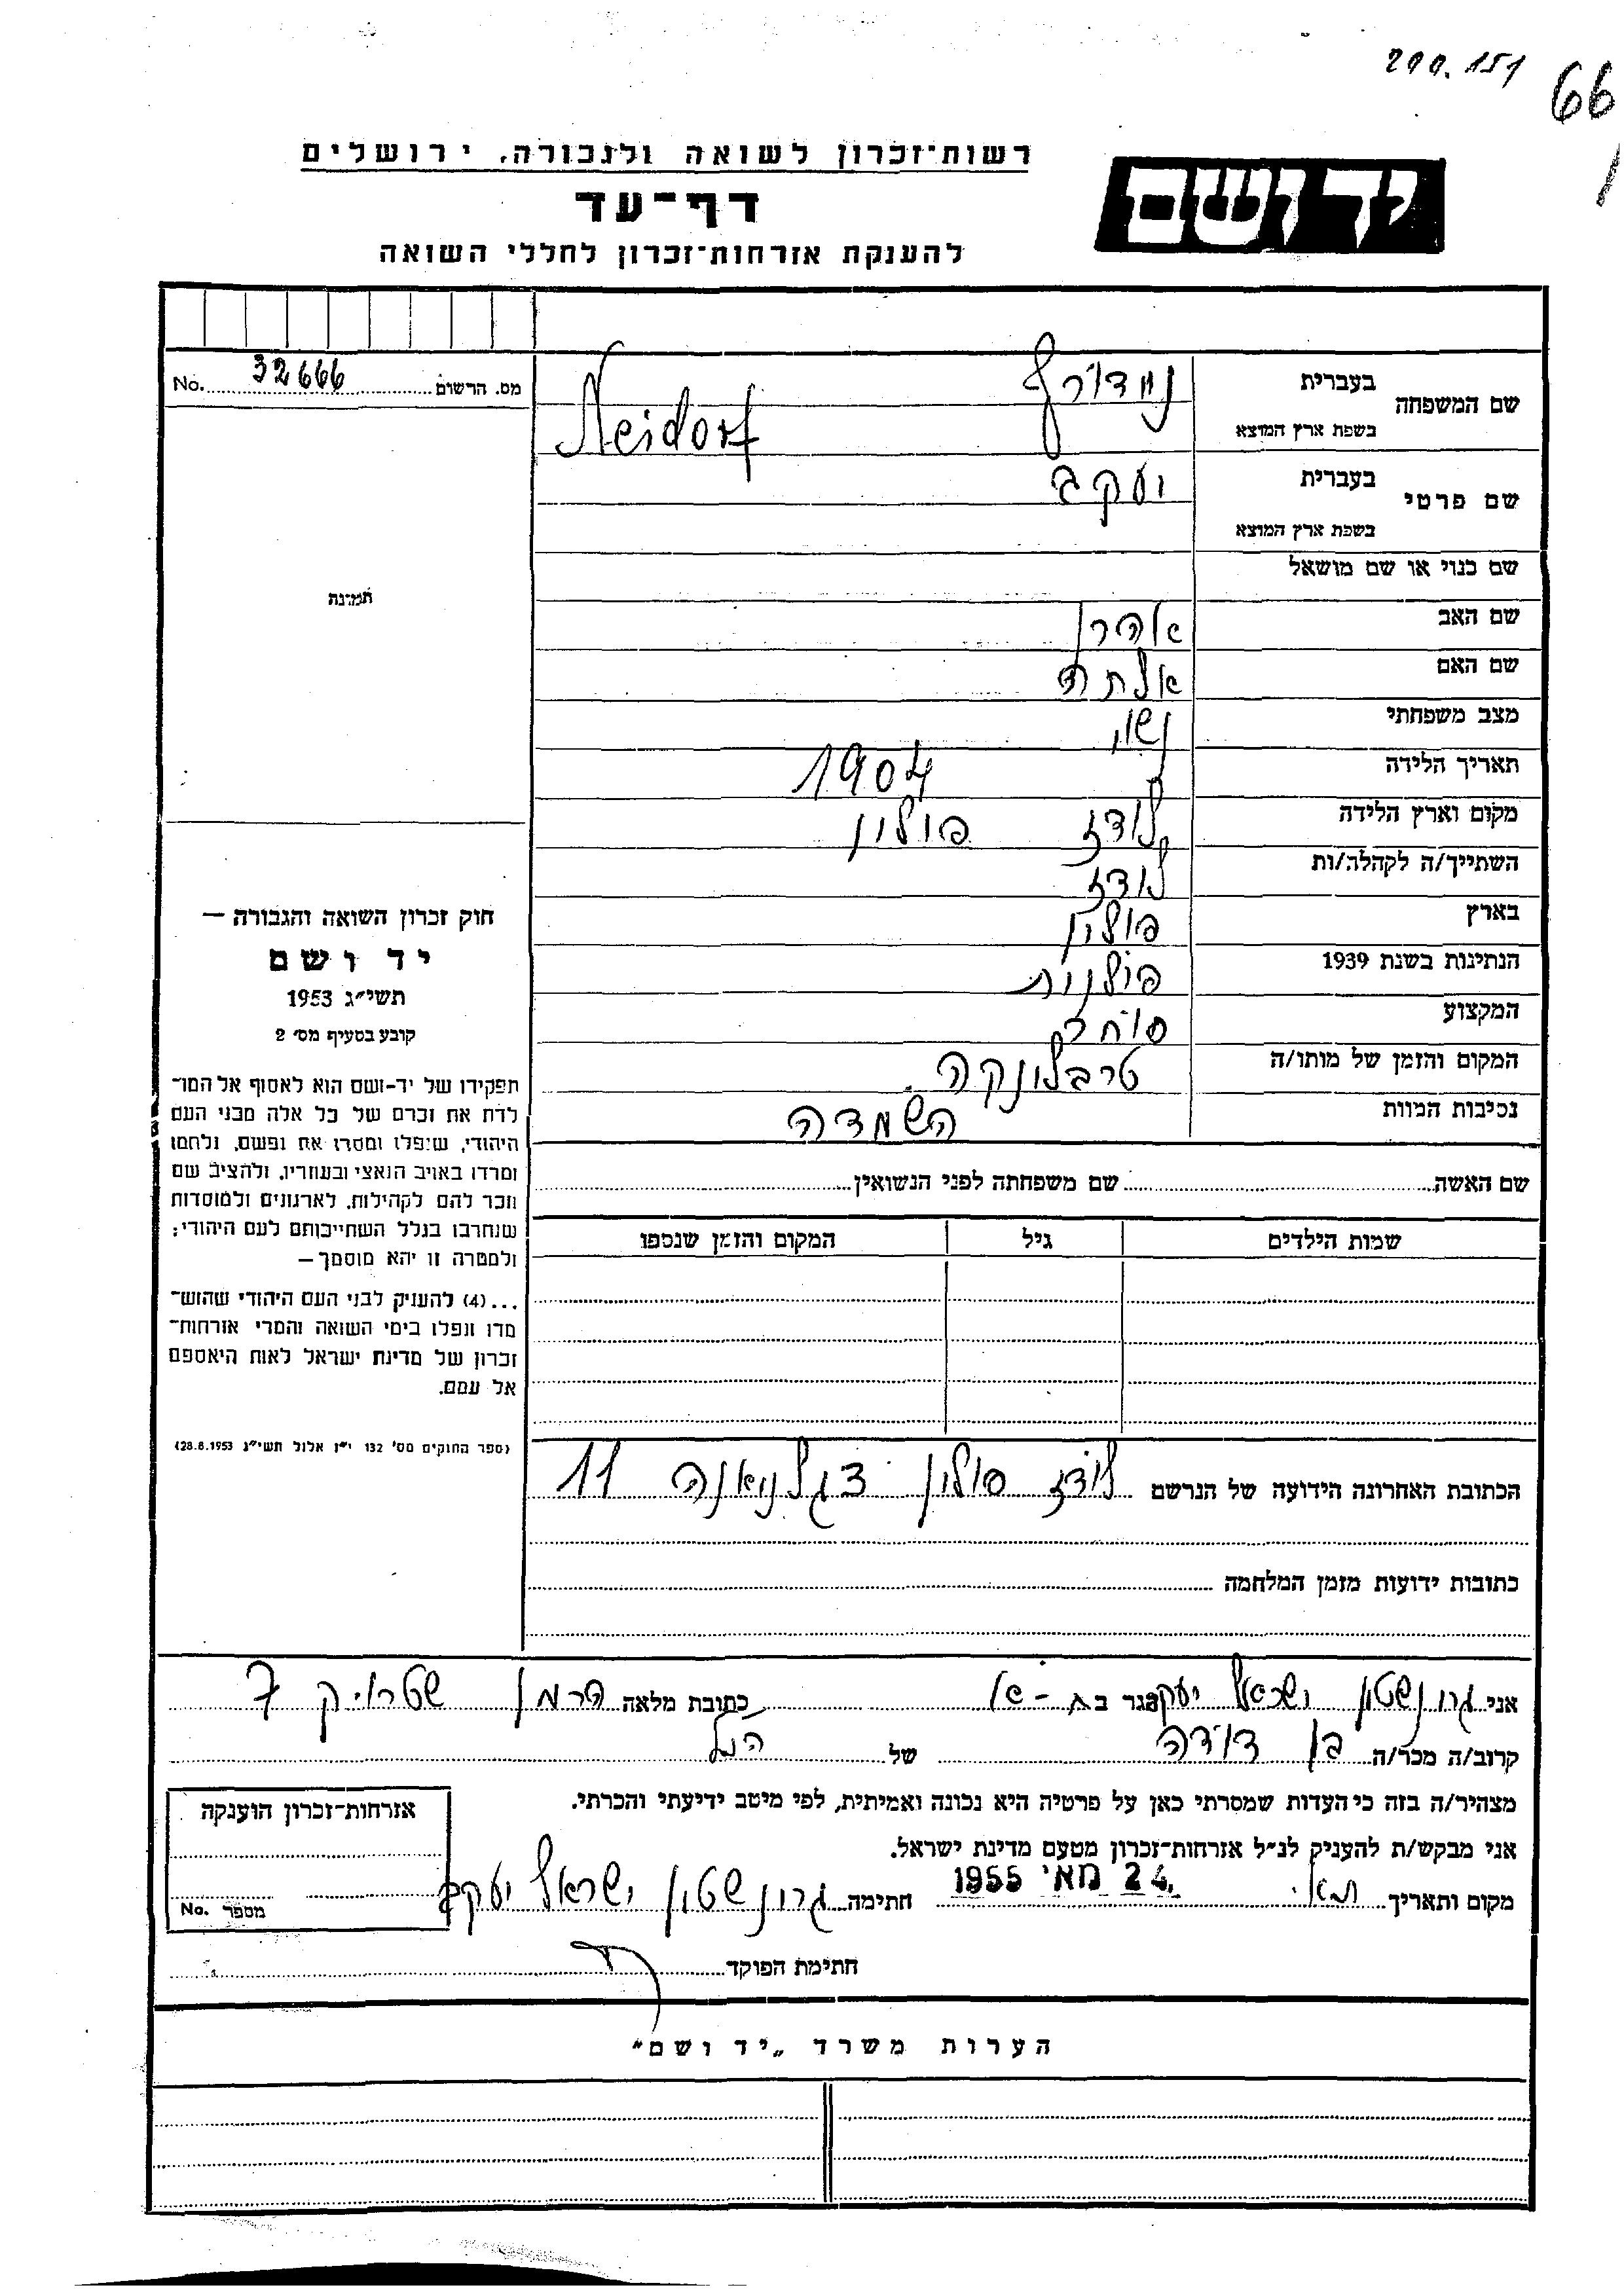 200.151
66
רשות־זכרון לשואה ולגבורה, ירושלים
יד ושם
דף־עד
להענקת אזרחות־זכרון לחללי השואה
מס. הרשום 32666 No.
שם המשפחה
בעברית נידורף
בשפת ארץ המוצא Neidorf
שם פרטי
בעברית יעקב
בשפת ארץ המוצא
שם כנוי או שם מושאל
תמונה
שם האב אהרן
שם האם
מצב משפחתי נשוי
תאריך הלידה 1904
מקום וארץ הלידה לודז פולין
השתייך/ה לקהלה/ות לודז
בארץ פולין
הנתינות בשנת 1939 פולנית
המקצוע סוחר
המקום והזמן של מותו/ה טרבלונקה
נסיבות המוות השמדה
חוק זכרון השואה והגבורה —
יד ושם
תשי״ג 1953
קובע בסעיף מס׳ 2
תפקידו של יד-ושם הוא לאסוף אל המו־
לדת את זכרם של כל אלה מבני העם
היהודי, שיפלו ומסרו את נפשם, נלחמו
ומרדו באויב הנאצי ובעוזריו, ולהציב שם
וזכר להם לקהילות, לארגונים ולמוסדות
שנחרבו בגלל השתייכותם לעם היהודי;
ולמטרה זו יהא מוסמך —
...(4) להעניק לבני העם היהודי שהוש־
מדו ונפלו בימי השואה והמרי אזרחות־
זכרון של מדינת ישראל לאות היאספם
אל עמם.
(ספר החוקים מס׳ 132 י״ז אלול תשי״ג 28.8.1953)
שם האשה שם משפחתה לפני הנשואין
שמות הילדים גיל המקום והזמן שנספו
הכתובת האחרונה הידועה של הנרשם לודז פולין צגלניאנה 11
כתובות ידועות מזמן המלחמה
אני גרונשטין ישראל יעקב הגר ב ת-א כתובת מלאה הרמן שטרויק 7
קרוב/ה מכר/ה בן דודה של הנ״ל
מצהיר/ה בזה כי העדות שמסרתי כאן על פרטיה היא נכונה ואמיתית, לפי מיטב ידיעתי והכרתי.
אני מבקש/ת להעניק לנ״ל אזרחות־זכרון מטעם מדינת ישראל.
מקום ותאריך ת״א 24 מאי 1955 חתימה גרונשטין ישראל יעקב
אזרחות־זכרון הוענקה
מספר No.
חתימת הפוקד
הערות משרד „יד ושם״